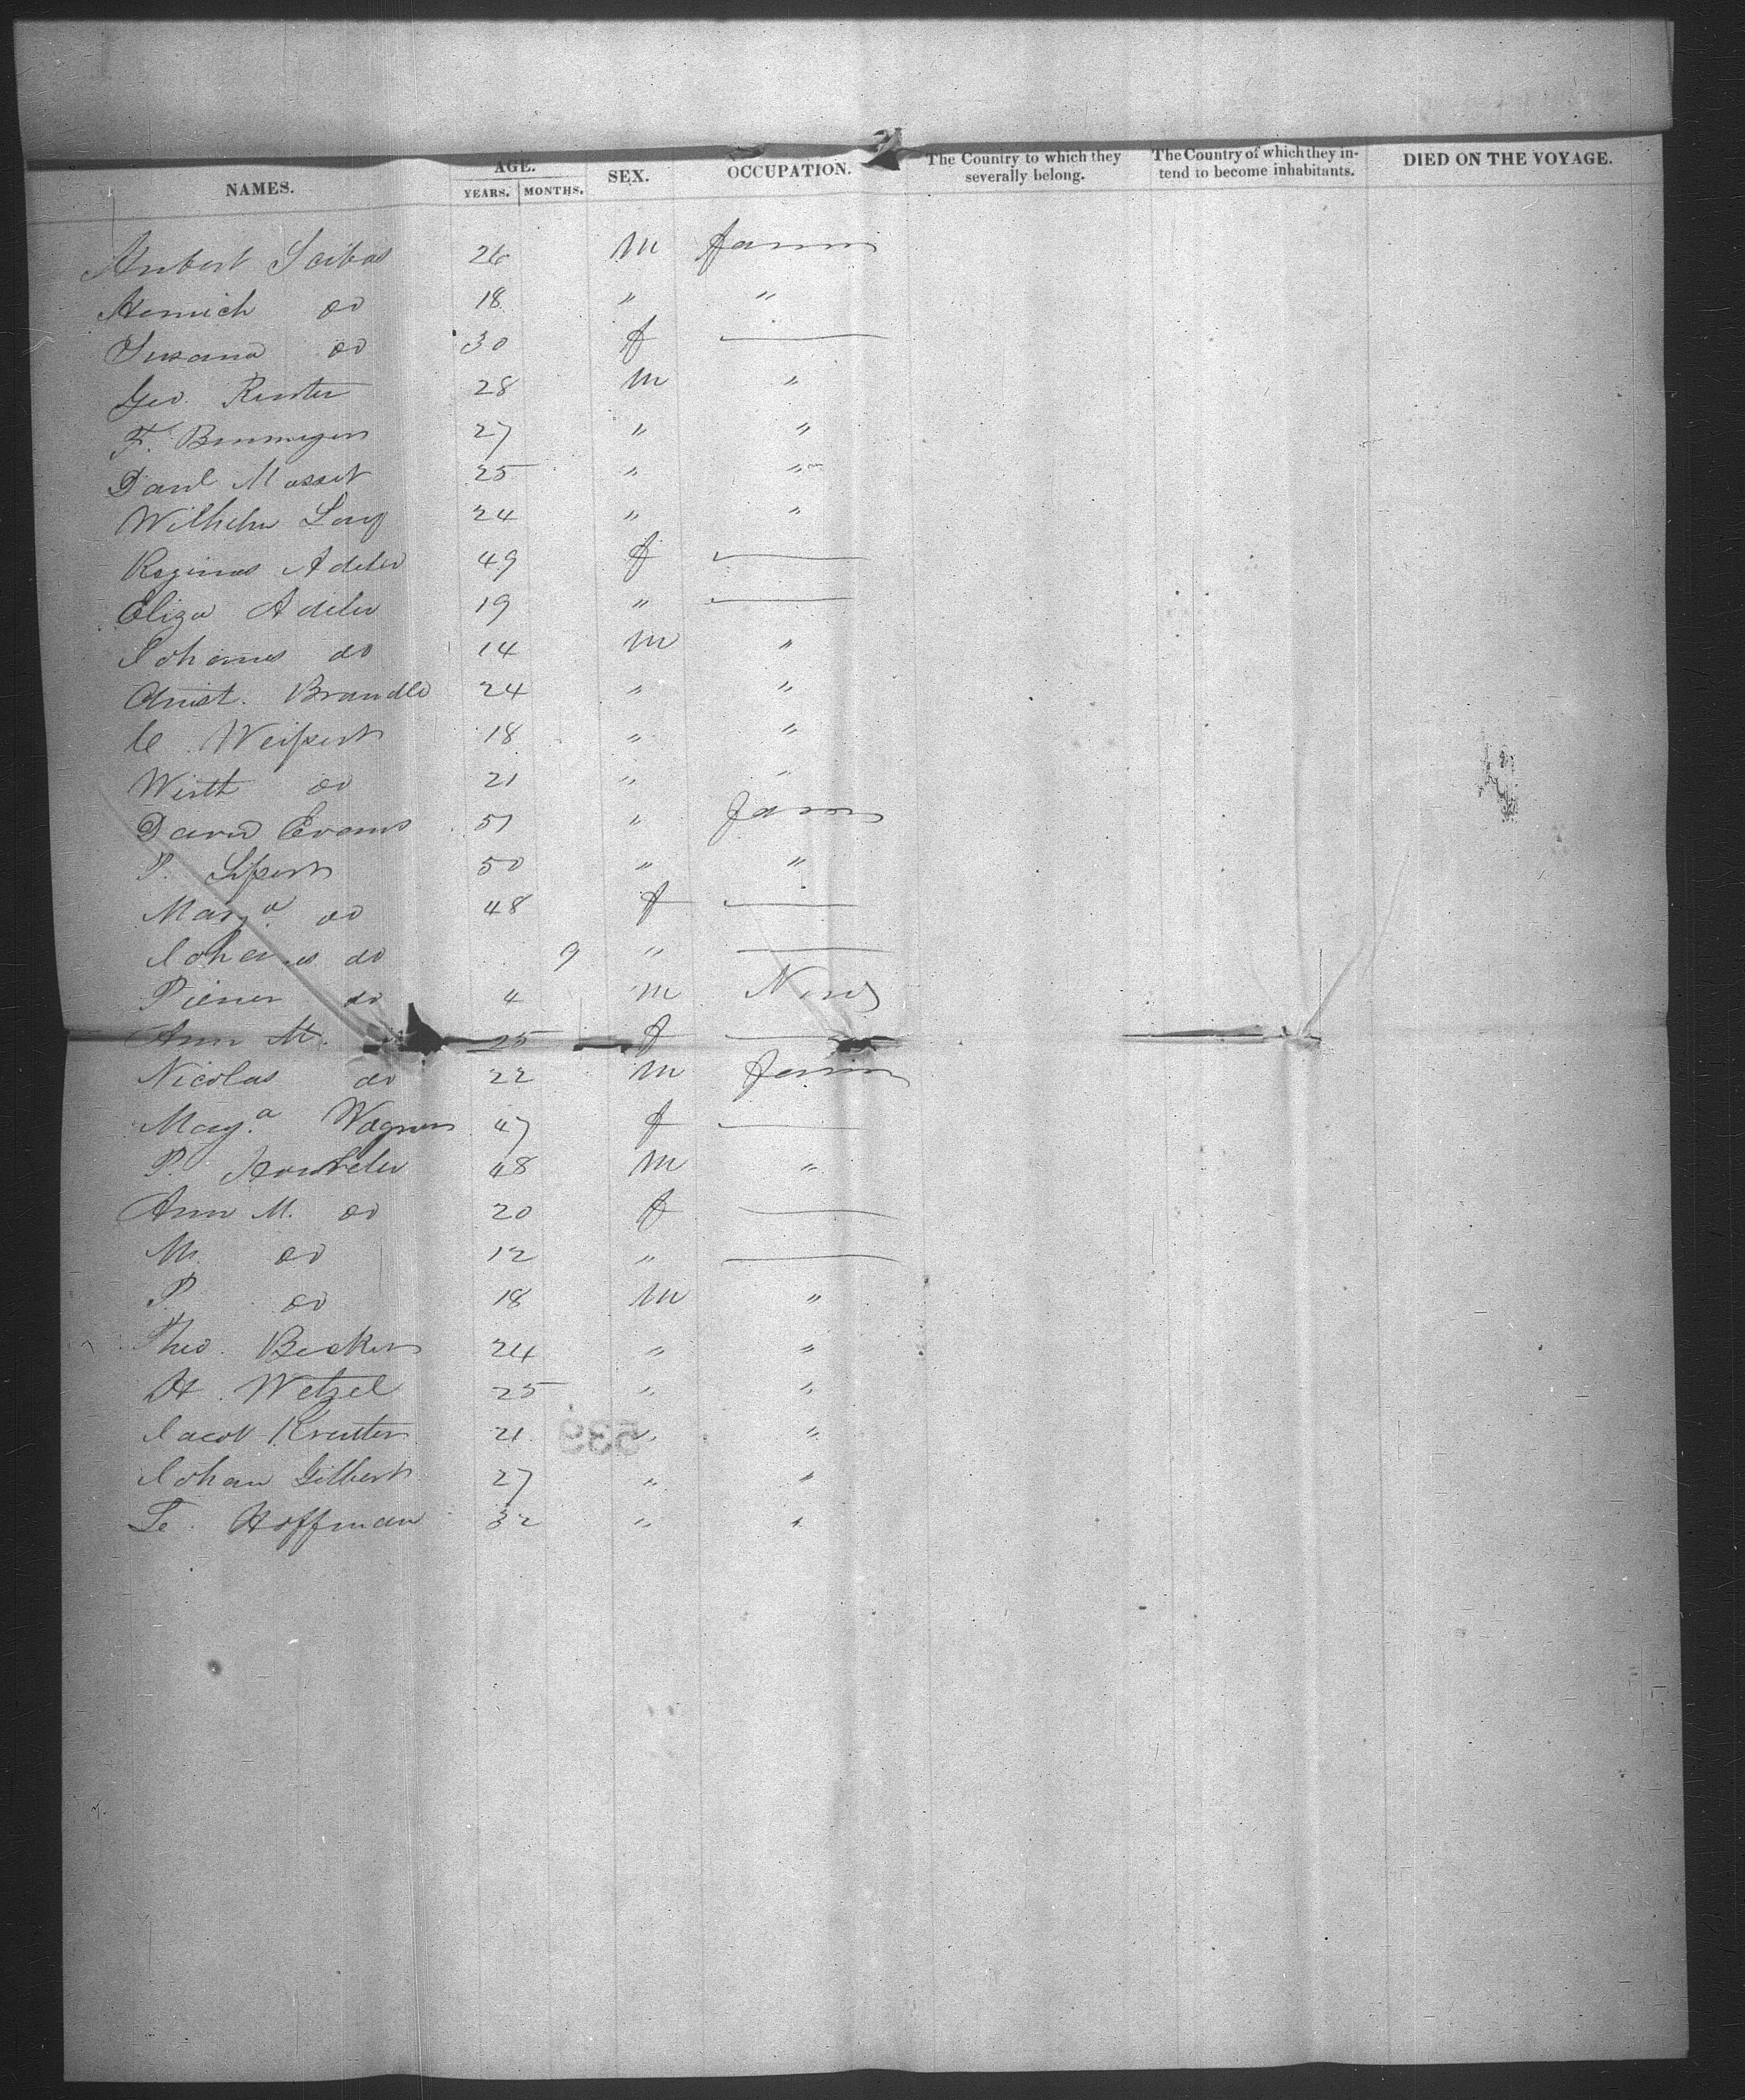 NAMES. AGE. YEARS. MONTHS. SEX. OCCUPATION. The Country to which they severally belong. The Country of which they intend to become inhabitants. DIED ON THE VOYAGE.
Hubert 26 M Farmer
Henrich do 18 " "
Susana do 30 f —
Geo. Reuter 28 M "
F. 27 " "
Paul Masset 25 " "
Wilhelm Long 24 " "
Reginas Adeler 49 f —
Eliza Adeler 19 " —
Johanes do 14 M "
Christ. Brandle 24 " "
C Weifert 18 " "
Wirth do 21 " "
David Evans 51 " Farmer
P. Lipert 50 " "
Marga do 48 f —
Johanes do 9 " —
Pierer do 4 M None
Ann M. 25 f —
Nicolas do 22 M Farmer
Marga Wagner 47 f —
P. 48 M "
Ann M. do 20 f —
M. do 12 " —
P. do 18 M "
Theo. Becker 24 " "
H. Wetzel 25 " "
Jacob Kreutter 21 " "
Johan Gilbert 27 " "
Le. Hoffman 32 " "
539